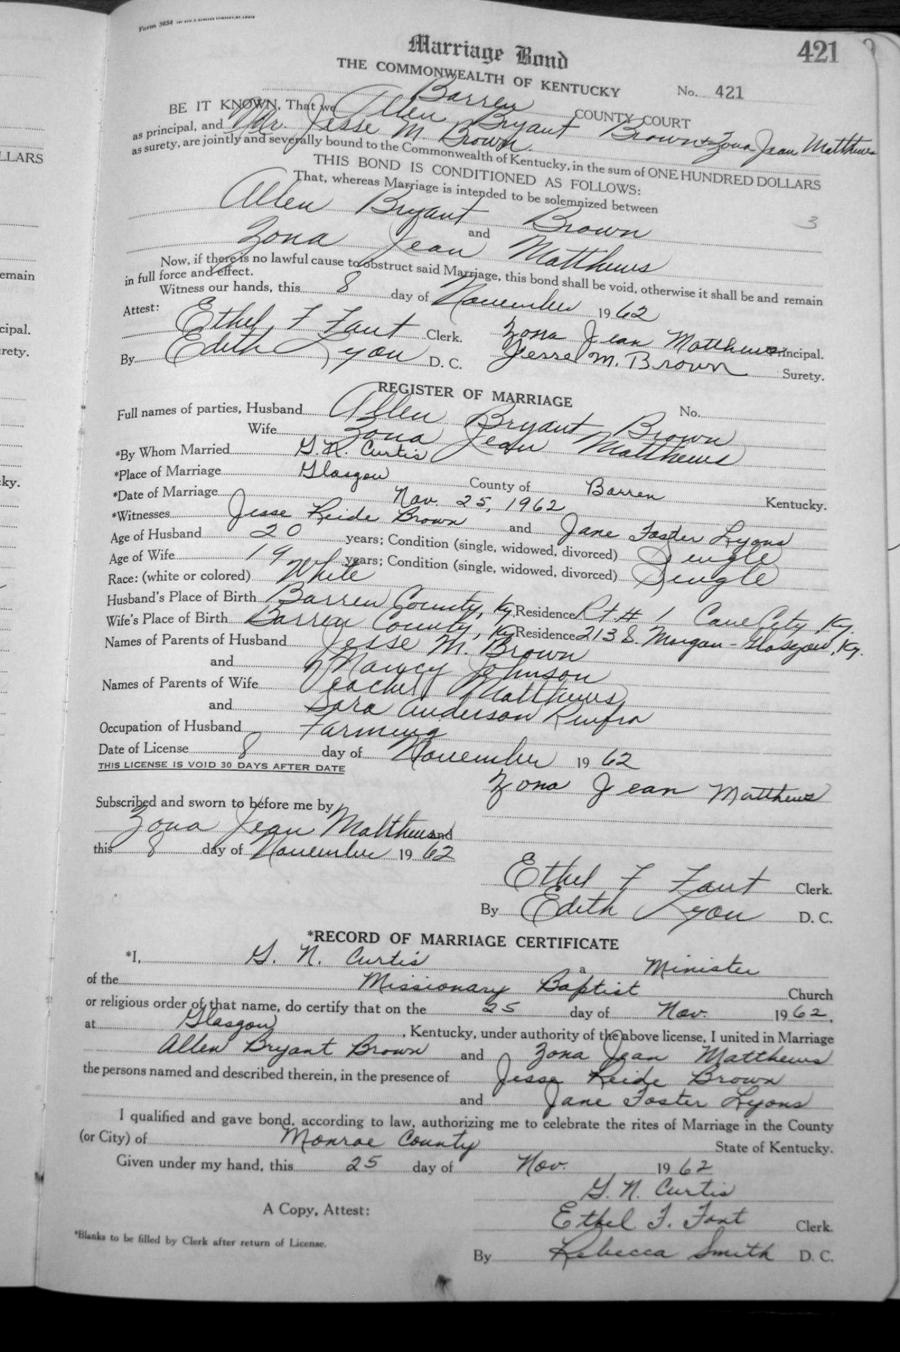 LLARS
emain
cipal.
rety.
ky.
Form 365d
421
Marriage Bond
THE COMMONWEALTH OF KENTUCKY No. 421
Barren COUNTY COURT
BE IT KNOWN, That we Allen Bryant Brown + Zona Jean Matthews
as principal, and Mr. Jesse M. Brown
as surety, are jointly and severally bound to the Commonwealth of Kentucky, in the sum of ONE HUNDRED DOLLARS
THIS BOND IS CONDITIONED AS FOLLOWS:
That, whereas Marriage is intended to be solemnized between
Allen Bryant Brown
3
and
Zona Jean Matthews
Now, if there is no lawful cause to obstruct said Marriage, this bond shall be void, otherwise it shall be and remain
in full force and effect.
Witness our hands, this 8 day of November 1962
Attest:
Ethel F Fant Clerk. Zona Jean Matthews Principal.
By Edith Lyon D. C. Jesse M. Brown Surety.
REGISTER OF MARRIAGE
Full names of parties, Husband Allen Bryant Brown No.
Wife Zona Jean Matthews
*By Whom Married G. N. Curtis
*Place of Marriage Glasgow County of Barren Kentucky.
*Date of Marriage Nov. 25, 1962
*Witnesses Jesse Reide Brown and Jane Foster Lyons
Age of Husband 20 years; Condition (single, widowed, divorced) Single
Age of Wife 19 years; Condition (single, widowed, divorced) Single
Race: (white or colored) White
Husband's Place of Birth Barren County, Ky Residence Rt # 1 Cave City Ky.
Wife's Place of Birth Barren County, Ky Residence 213 S. Morgan - Glasgow, Ky.
Names of Parents of Husband Jesse M. Brown
and Nancy Johnson
Names of Parents of Wife Matthews
and Sara Anderson
Occupation of Husband Farming
Date of License 8 day of November 1962
THIS LICENSE IS VOID 30 DAYS AFTER DATE
Zona Jean Matthews
Subscribed and sworn to before me by
Zona Jean Matthews and
this 8 day of November 1962
Ethel F Fant Clerk.
By Edith Lyon D. C.
*RECORD OF MARRIAGE CERTIFICATE
*I, G. N. Curtis a Minister
of the Missionary Baptist Church
or religious order of that name, do certify that on the 25 day of Nov. 1962,
at Glasgow, Kentucky, under authority of the above license, I united in Marriage
Allen Bryant Brown and Zona Jean Matthews
the persons named and described therein, in the presence of Jesse Reide Brown
and Jane Foster Lyons
I qualified and gave bond, according to law, authorizing me to celebrate the rites of Marriage in the County
(or City) of Monroe County State of Kentucky.
Given under my hand, this 25 day of Nov. 1962
G. N. Curtis
A Copy, Attest: Ethel F. Fant Clerk.
*Blanks to be filled by Clerk after return of License.
By Rebecca Smith D. C.